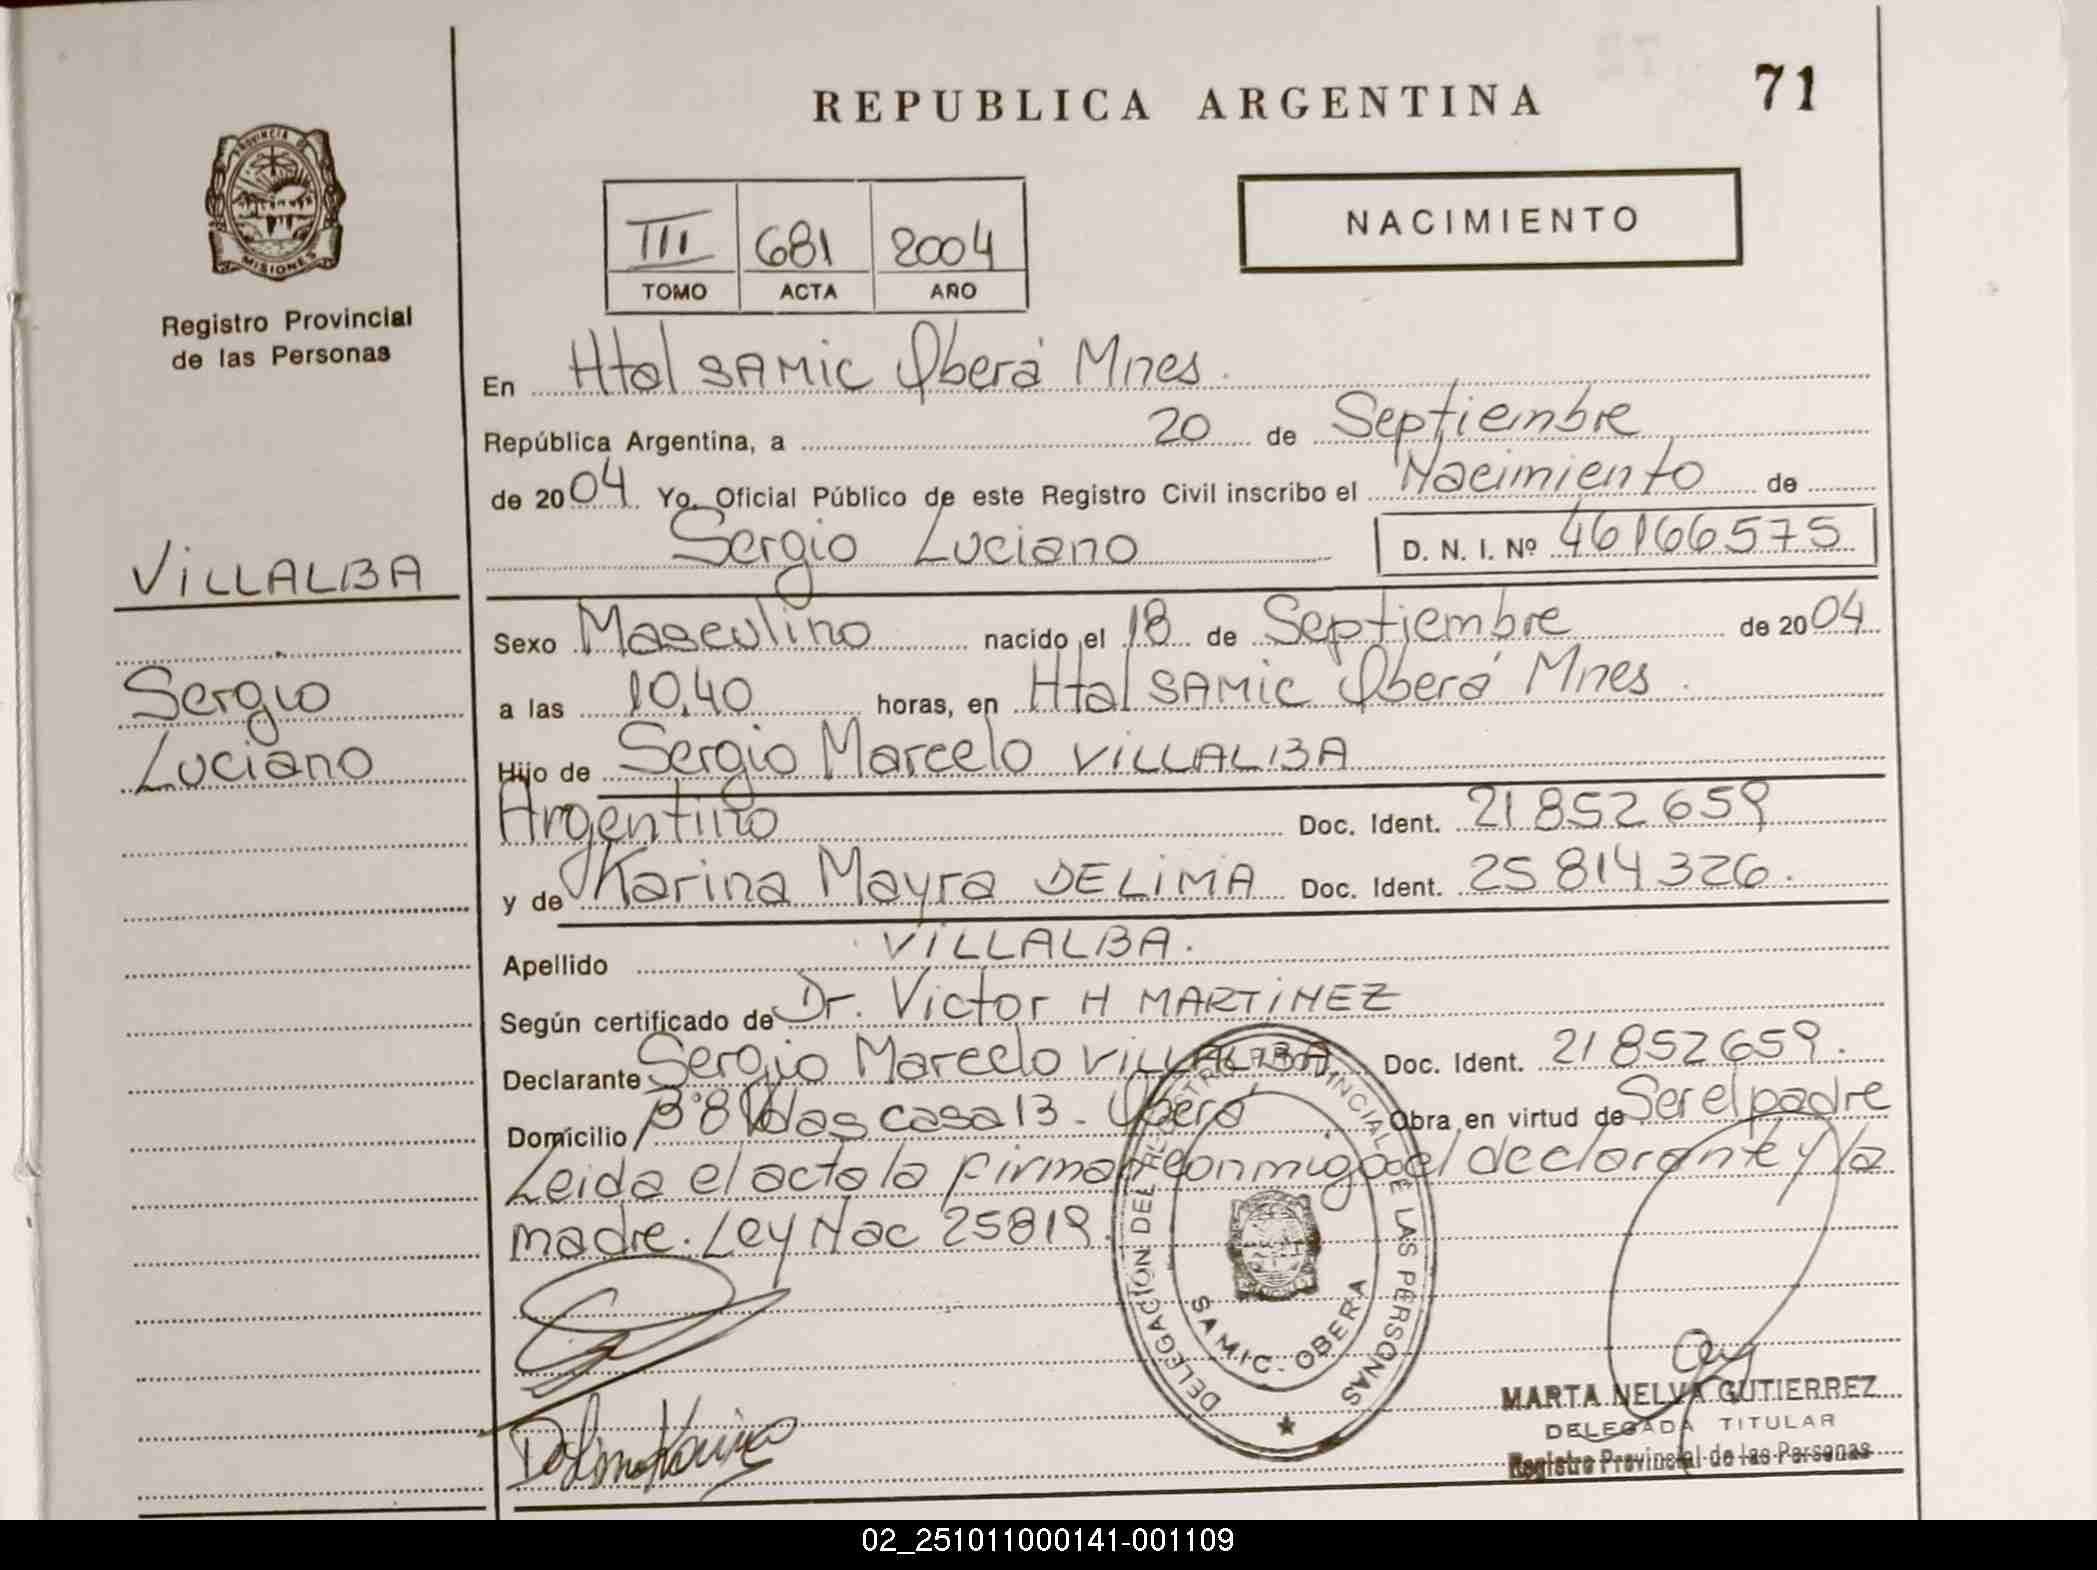 REPUBLICA ARGENTINA
71
PROVINCIA DE
MISIONES
Registro Provincial
de las Personas
III 681 2004
TOMO ACTA AÑO
NACIMIENTO
En Htal SAMIC Oberá Mnes.
República Argentina, a 20 de Septiembre
de 2004 Yo, Oficial Público de este Registro Civil inscribo el Nacimiento de
Sergio Luciano D. N. I. Nº 46166575
VILLALBA
Sergio
Luciano
Sexo Masculino nacido el 18 de Septiembre de 2004
a las 10,40 horas, en Htal SAMIC Oberá Mnes.
Hijo de Sergio Marcelo VILLALBA
Argentino Doc. Ident. 21852659
y de Karina Mayra DELIMA Doc. Ident. 25814326.
Apellido VILLALBA.
Según certificado de Dr. Victor H MARTINEZ
Declarante Sergio Marcelo VILLALBA Doc. Ident. 21852659.
Domicilio Bº 8 casa 13 - Oberá Obra en virtud de Ser el padre
Leida el acta la firman conmigo el declarante y la
madre. Ley Nac 25819.
DELEGACIÓN DEL REGISTRO PROVINCIAL DE LAS PERSONAS
SAMIC - OBERA
MARTA NELVA GUTIERREZ
DELEGADA TITULAR
Registro Provincial de las Personas
02_251011000141-001109